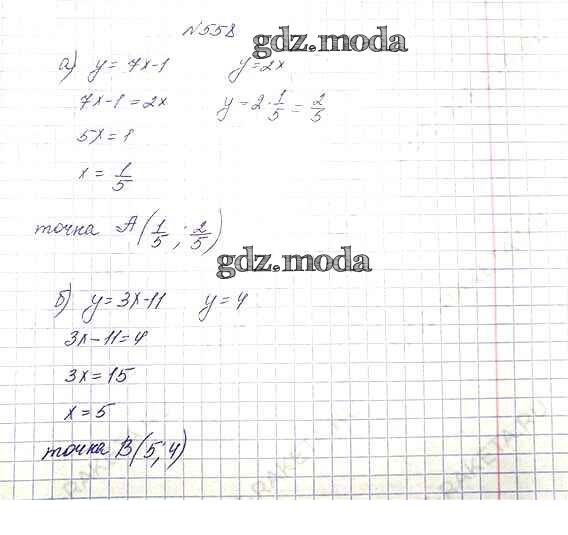 №558
gdz.moda
а) y = 7x-1 y=2x
7x-1=2x y=2·1/5=2/5
5x=1
x=1/5
точка A(1/5; 2/5)
gdz.moda
б) y=3x-11 y=4
3x-11=4
3x=15
x=5
точка B(5;4)
RAKETA.RU
RAKETA.RU
RAKETA.RU